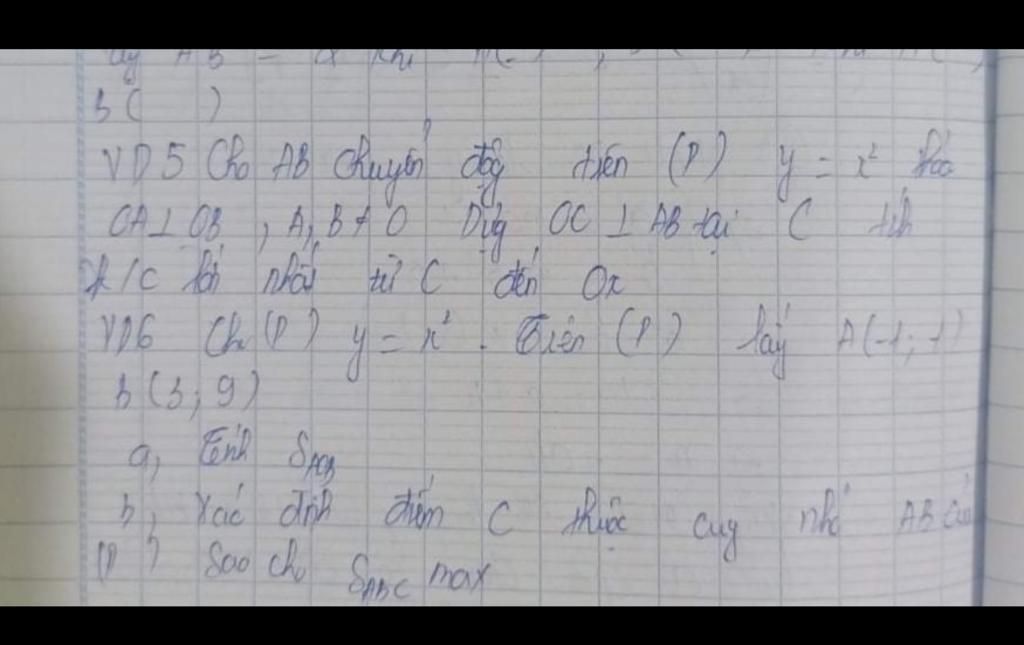 AB =
b ( )
VD5 Cho AB chuyển động trên (P) y = x²
OA ⊥ OB , A, B ≠ O Dựng OC ⊥ AB tại C tính
k/c lớn nhất từ C đến Ox
VD6 Cho (P) y = x² . Trên (P) lấy A(-1; 1)
b (3; 9)
a, Tính
b, Xác định điểm C thuộc cung nhỏ AB của
(P) Sao cho S_ABC max